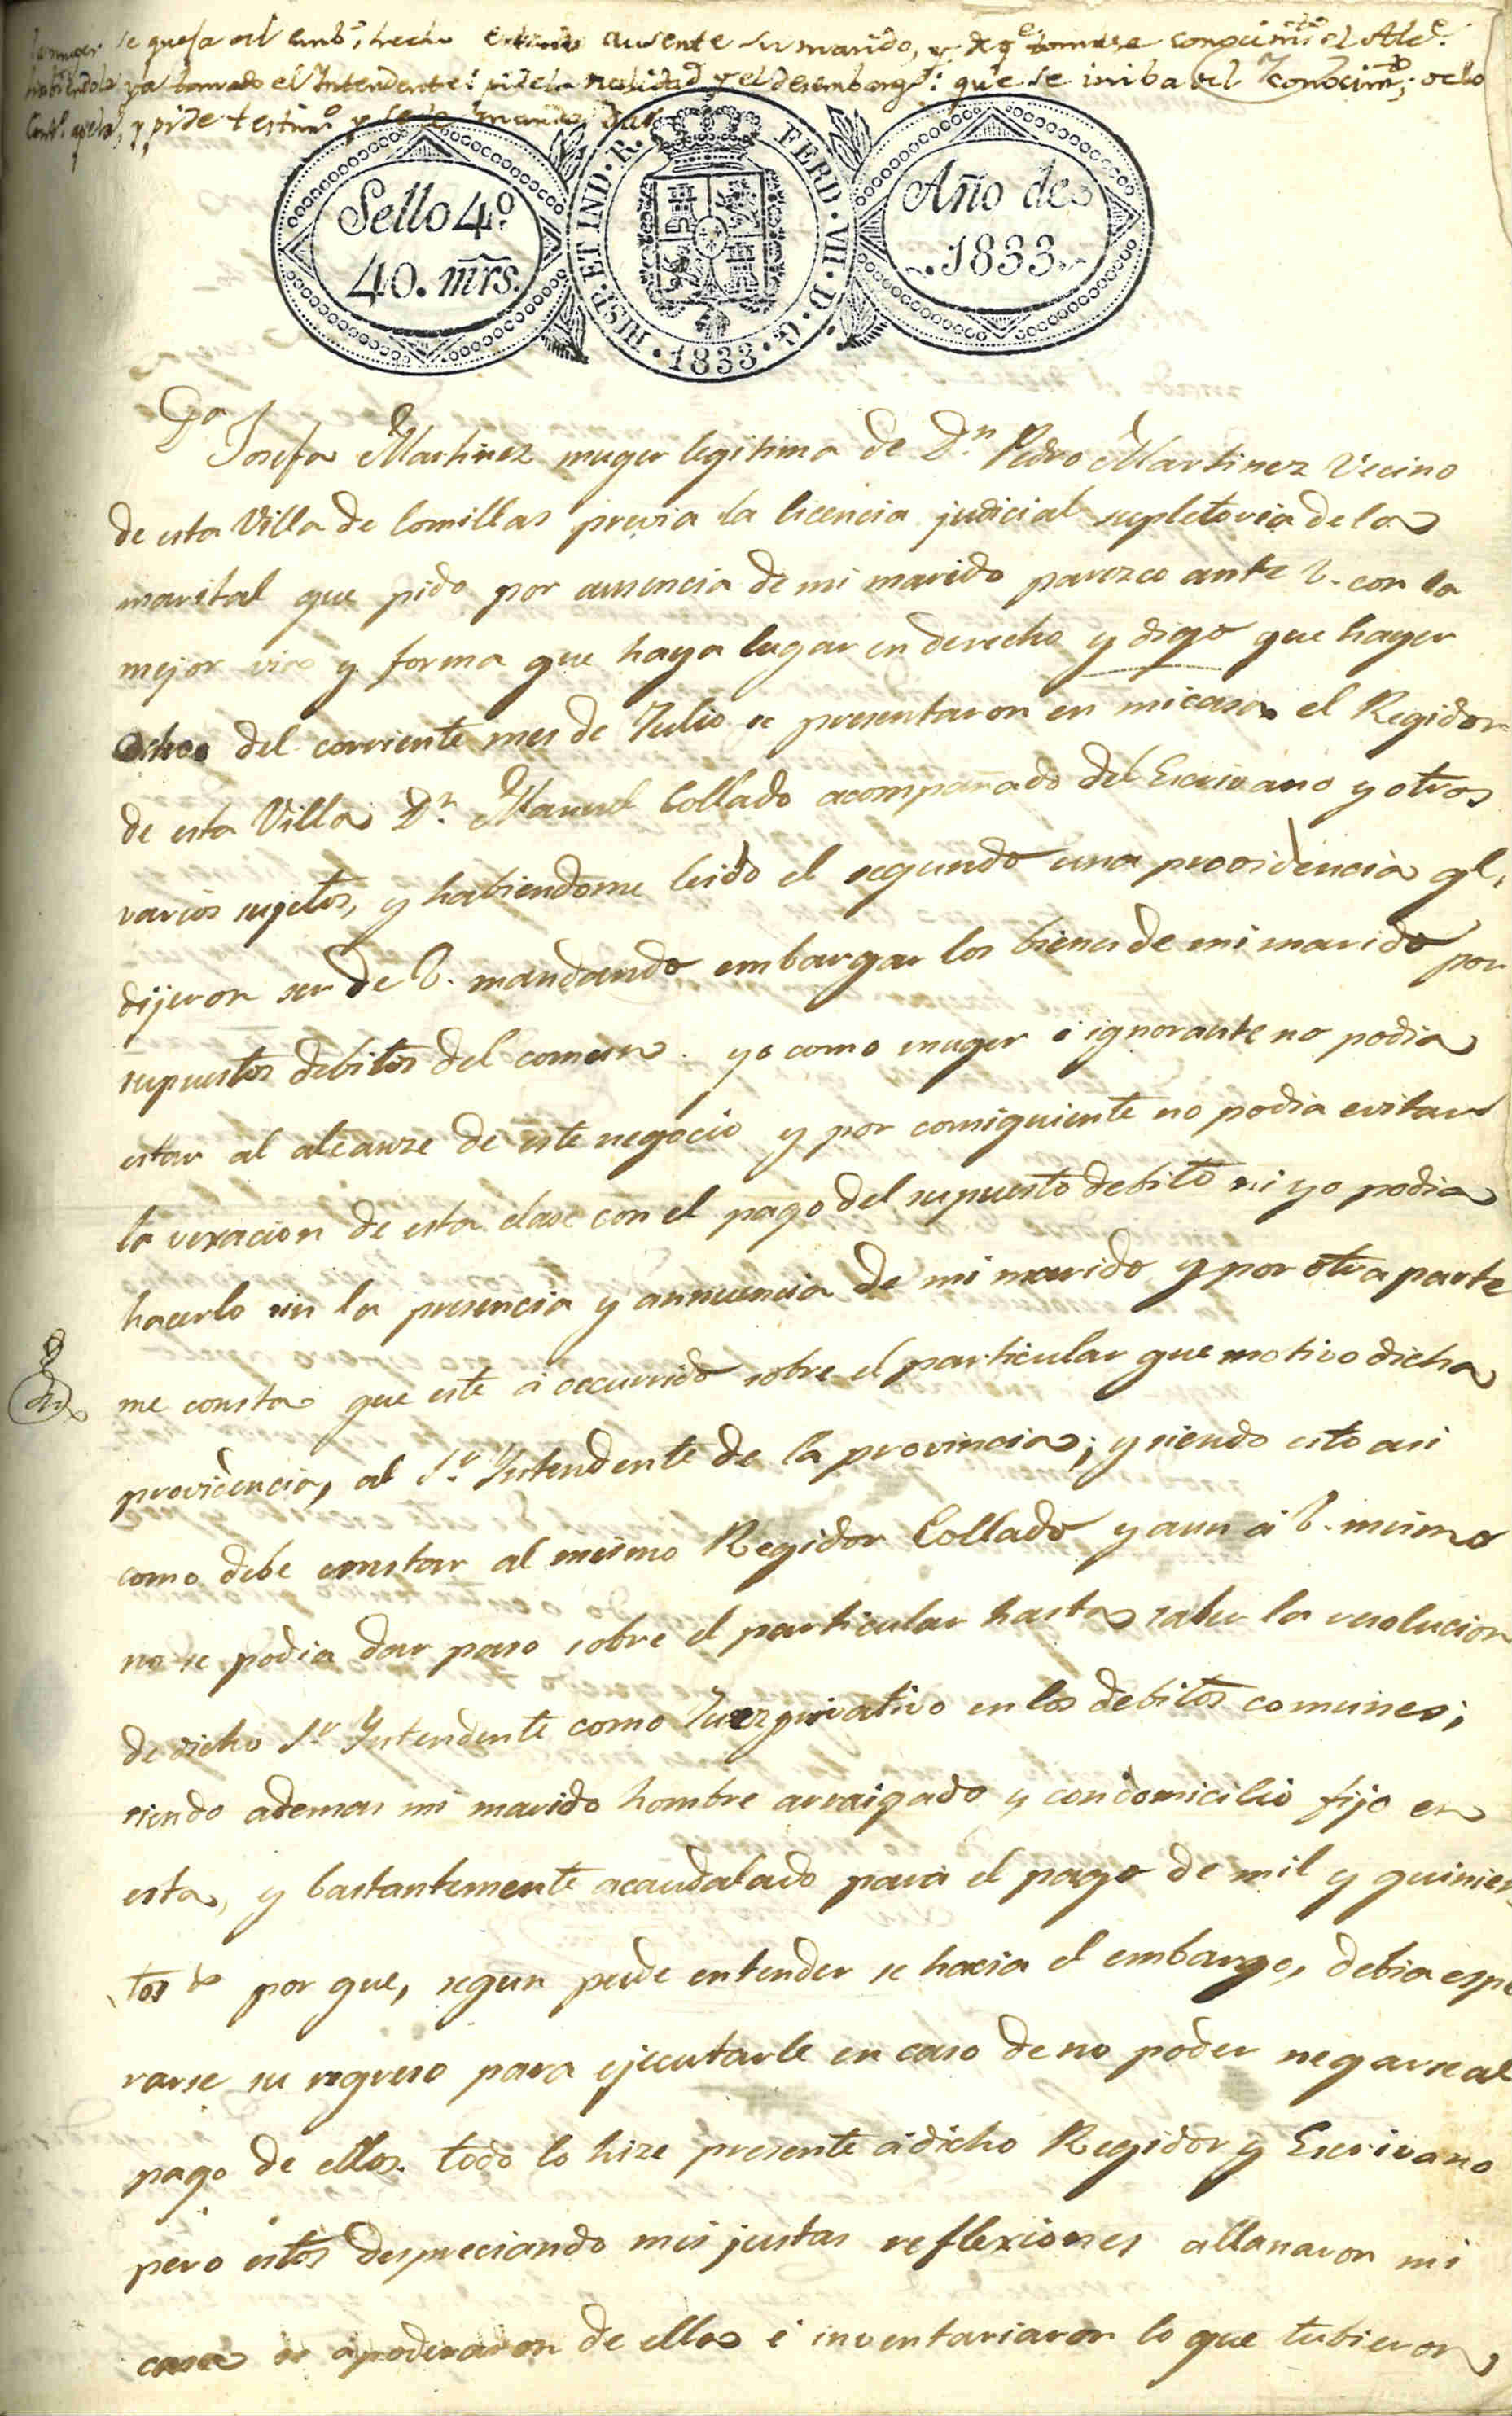 la muger se queja del emb.º, hecho estando ausente su marido, y de q.e tomase conocim.to el Alc.e
habiendole ya tomado el Intendente: pide la nulidad y el desembargo: que se iniba del conocim.to; de lo
Cont.º apela, y pide testim.º y se le mande dar
Sello 4.º
40. mrs.
HISP. ET IND. R. FERD. VII. D. G. 1833
Año de
1833
D.a Josefa Martinez muger legitima de D.n Pedro Martinez Vecino
de esta Villa de Comillas previa la licencia judicial supletoria de la
marital que pido por ausencia de mi marido parezco ante V. con la
mejor via y forma que haya lugar en derecho y digo que hayer
ocho del corriente mes de Julio se presentaron en mi casa el Regidor
de esta Villa D.n Manuel Collado acompañado del Escrivano y otros
varios sujetos, y habiendome leido el segundo una providencia q.e
dijeron ser de V. mandando embargar los bienes de mi marido por
supuestos debitos del comun. yo como muger é ignorante no podia
estar al alcanze de este negocio y por consiguiente no podia evitar
la vexacion de esta clase con el pago del supuesto debito ni yo podia
hacerlo sin la presencia y annuencia de mi marido y por otra parte
me consta que este á occurrido sobre el particular que motivo dicha
providencia, al S.r Intendente de la provincia; y siendo esto asi
como debe constar al mismo Regidor Collado y aun á V. mismo
no se podia dar paso sobre el particular hasta saber la resolucion
de dicho S.r Intendente como Juez privativo en los debitos comunes;
siendo ademas mi marido hombre arraigado y con domicilio fijo en
esta, y bastantemente acaudalado para el pago de mil y quinien
tos por que, segun pude entender se hacia el embargo, debia espe
rarse su regreso para ejecutarle en caso de no poder negarse al
pago de ellos. todo lo hize presente á dicho Regidor y Escrivano
pero estos despreciando mis justas reflexiones allanaron mi
casa se apoderaron de ella é inventariaron lo que tubieron